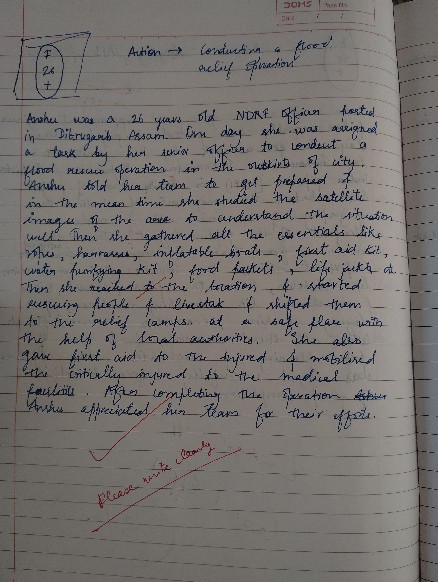 DOMS
Page No.
Date / /
F
26
+
Action → Conducting a flood
relief operation
Anshu was a 26 years old NDRF Officer posted
in Dibrugarh Assam. One day she was assigned
a task by her senior officer to conduct a
flood rescue operation in the outskirts of city.
Anshu told her team to get prepared &
in the mean time she studied the satellite
images of the area to understand the situation
well. Then she gathered all the essentials like
ropes, harnesses, inflatable boats, first aid kit,
water purifying kit, food packets, life jackets etc.
Then she reached to the location & started
rescuing people & livestock & shifted them
to the relief camps at a safe place with
the help of local authorities. She also
gave first aid to the injured & mobilised
the critically injured to the medical
facilities. After completing the operation
Anshu appreciated her team for their efforts.
Please write clearly